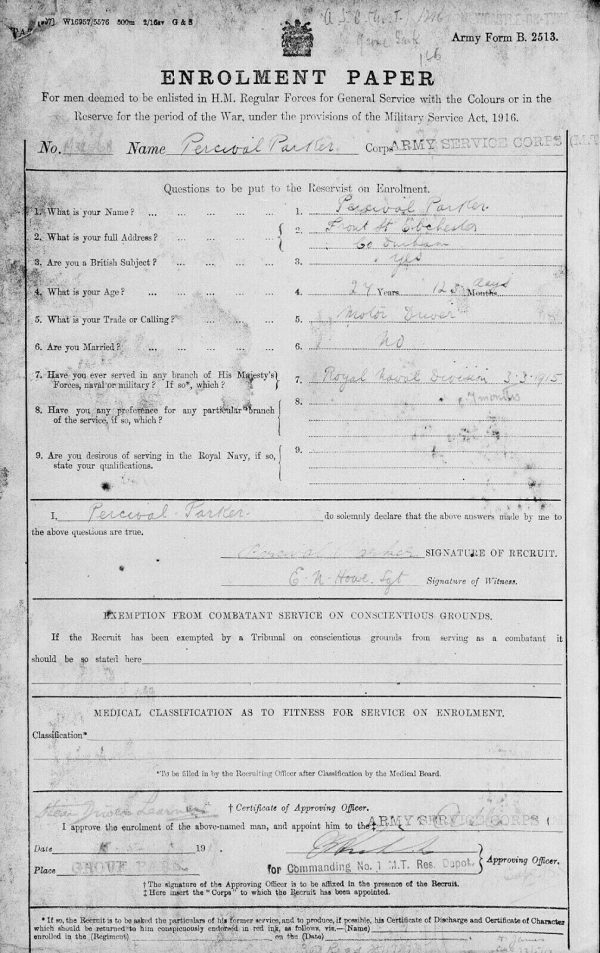 W16957/5576 500m 2/16av G & S
Army Form B. 2513.
ENROLMENT PAPER
For men deemed to be enlisted in H.M. Regular Forces for General Service with the Colours or in the
Reserve for the period of the War, under the provisions of the Military Service Act, 1916.
No. Name Percival Parker Corps ARMY SERVICE CORPS (M.T.
Questions to be put to the Reservist on Enrolment.
1. What is your Name? ... ... ... ... 1. Percival Parker
2. What is your full Address? ... ... ... 2. Front St Ebchester
Co Durham
3. Are you a British Subject? ... ... ... 3. Yes
4. What is your Age? ... ... ... ... 4. 24 Years 125 days Months
5. What is your Trade or Calling? ... ... ... 5. Motor Driver
6. Are you Married? ... ... ... ... 6. No
7. Have you ever served in any branch of His Majesty's
Forces, naval or military? If so*, which? ... 7. Royal Naval Division 3.3.1915
8. Have you any preference for any particular branch
of the service, if so, which? 8. months
9. Are you desirous of serving in the Royal Navy, if so,
state your qualifications. 9.
I, Percival Parker do solemnly declare that the above answers made by me to
the above questions are true.
Percival Parker SIGNATURE OF RECRUIT.
E. N. Howe. Sgt Signature of Witness.
EXEMPTION FROM COMBATANT SERVICE ON CONSCIENTIOUS GROUNDS.
If the Recruit has been exempted by a Tribunal on conscientious grounds from serving as a combatant it
should be so stated here
MEDICAL CLASSIFICATION AS TO FITNESS FOR SERVICE ON ENROLMENT.
Classification*
*To be filled in by the Recruiting Officer after Classification by the Medical Board.
Learner
† Certificate of Approving Officer.
I approve the enrolment of the above-named man, and appoint him to the ‡ ARMY SERVICE CORPS
Date 191
Place GROVE PARK for Commanding No. 1 M.T. Res. Depot. Approving Officer.
† The signature of the Approving Officer is to be affixed in the presence of the Recruit.
‡ Here insert the "Corps" to which the Recruit has been appointed.
* If so, the Recruit is to be asked the particulars of his former service, and to produce, if possible, his Certificate of Discharge and Certificate of Character
which should be returned to him conspicuously endorsed in red ink, as follows, viz.—(Name)
enrolled in the (Regiment) on the (Date)